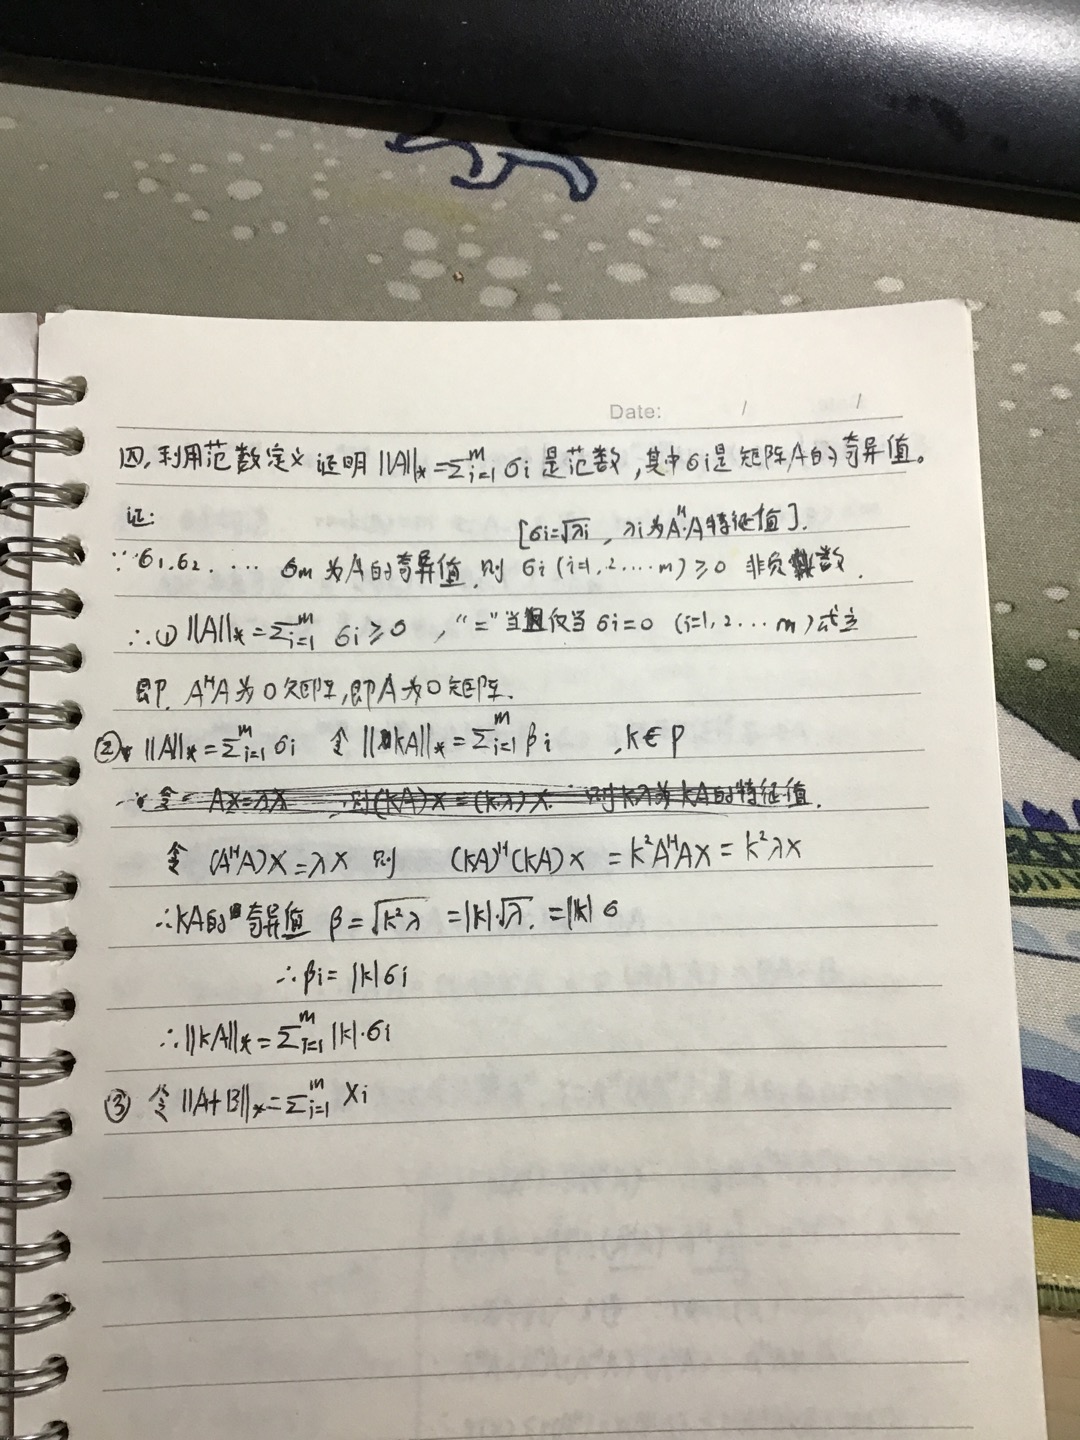 Date: / /
四，利用范数定义证明 ||A||_* = Σ_{i=1}^m σi 是范数，其中σi是矩阵A的奇异值。
证:
[σi=√λi , λi为A^H·A特征值].
∵ σ1.σ2. ... σm 为A的奇异值,则 σi (i=1,2....m) ≥0 非负数.
∴① ||A||_* = Σ_{i=1}^m σi ≥0 , “=”当且仅当 σi=0 (i=1,2...m) 成立
即. A^HA为0矩阵,即A为0矩阵.
② ||A||_* = Σ_{i=1}^m σi 令 ||kA||_* = Σ_{i=1}^m βi ,k∈P
∵令 AX=λX .则(kA)X=(kλ)X. 则kλ为kA的特征值.
令 (A^HA)X=λX 则 (kA)^H(kA)X = k²A^HAX = k²λX
∴kA的奇异值 β=√k²λ =|k|·√λ. =|k|σ
∴βi= |k|σi
∴||kA||_* = Σ_{i=1}^m |k|·σi
③ 令 ||A+B||_* = Σ_{i=1}^m Xi